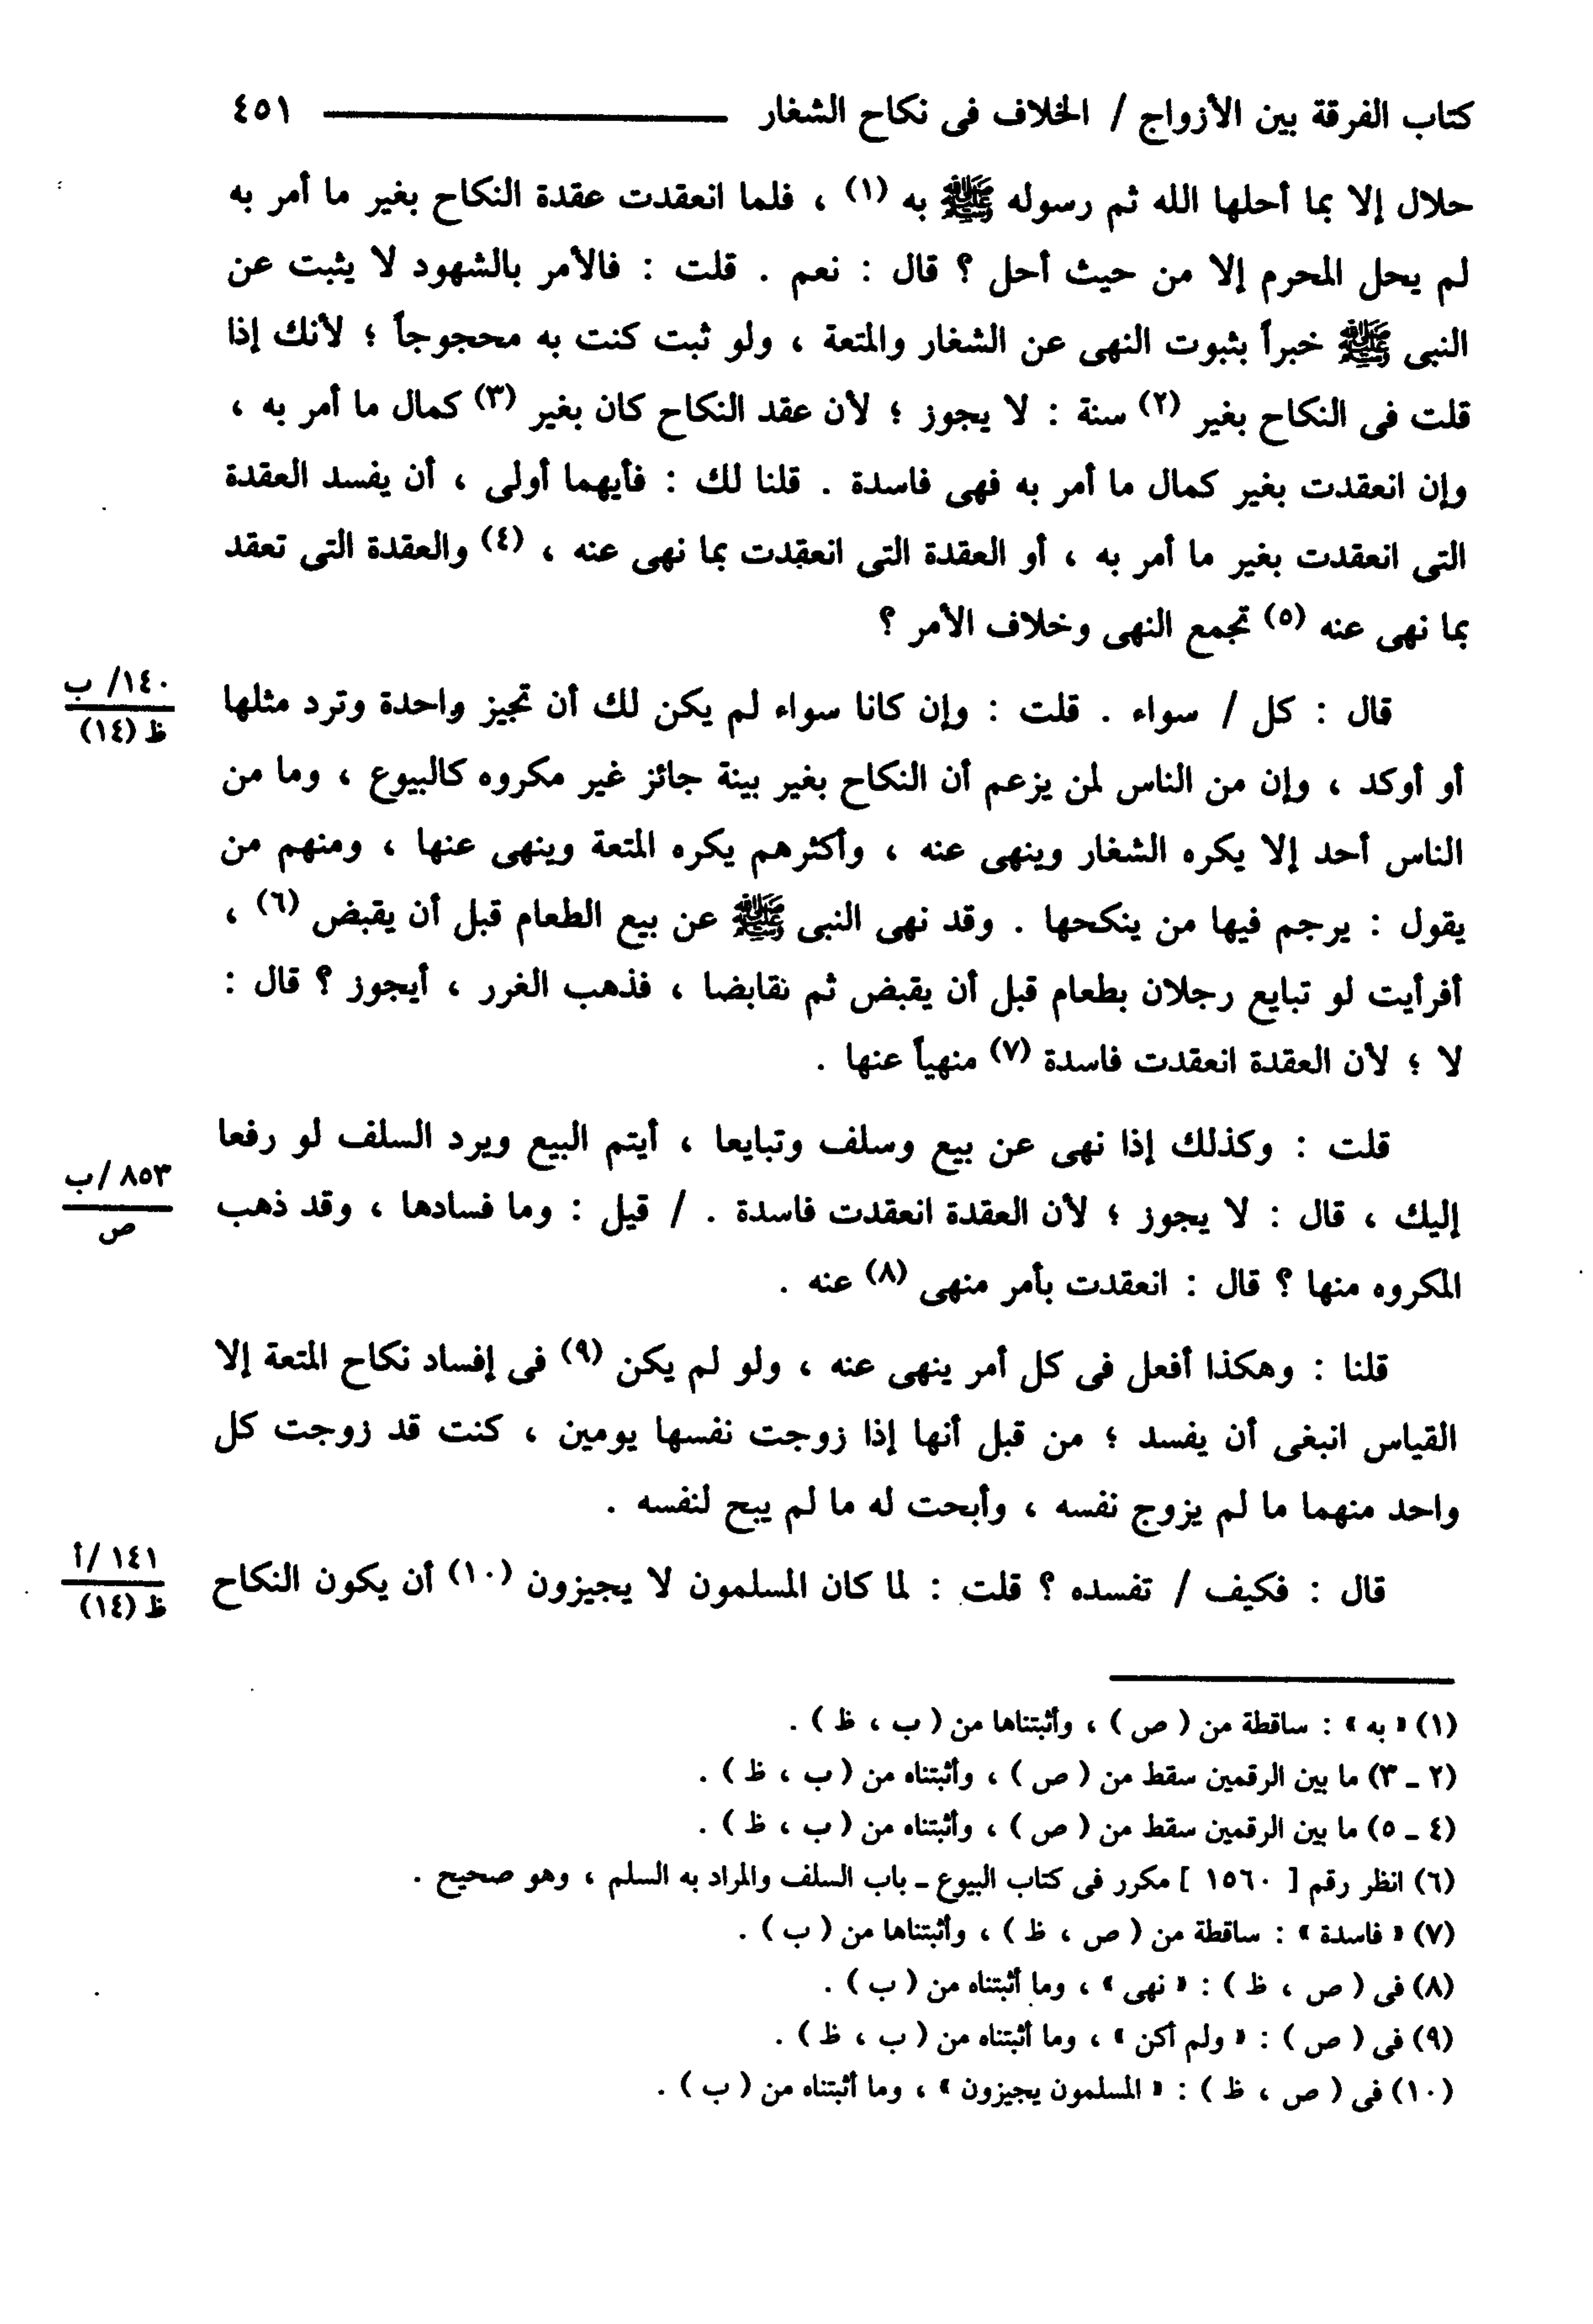 كتاب الفرقة بين الأزواج / الخلاف فى نكاح الشغار ٤٥١
حلال إلا بما أحلها الله ثم رسوله ﷺ به (١) ، فلما انعقدت عقدة النكاح بغير ما أمر به
لم يحل المحرم إلا من حيث أحل ؟ قال : نعم . قلت : فالأمر بالشهود لا يثبت عن
النبى ﷺ خبراً بثبوت النهى عن الشغار والمتعة ، ولو ثبت كنت به محجوجاً ؛ لأنك إذا
قلت فى النكاح بغير (٢) سنة : لا يجوز ؛ لأن عقد النكاح كان بغير (٣) كمال ما أمر به ،
وإن انعقدت بغير كمال ما أمر به فهى فاسدة . قلنا لك : فأيهما أولى ، أن يفسد العقدة
التى انعقدت بغير ما أمر به ، أو العقدة التى انعقدت بما نهى عنه ، (٤) والعقدة التى تعقد
بما نهى عنه (٥) تجمع النهى وخلاف الأمر ؟
قال : كل / سواء . قلت : وإن كانا سواء لم يكن لك أن تجيز واحدة وترد مثلها
١٤٠/ ب
ظ (١٤)
أو أوكد ، وإن من الناس لمن يزعم أن النكاح بغير بينة جائز غير مكروه كالبيوع ، وما من
الناس أحد إلا يكره الشغار وينهى عنه ، وأكثرهم يكره المتعة وينهى عنها ، ومنهم من
يقول : يرجم فيها من ينكحها . وقد نهى النبى ﷺ عن بيع الطعام قبل أن يقبض (٦) ،
أفرأيت لو تبايع رجلان بطعام قبل أن يقبض ثم نقابضا ، فذهب الغرر ، أيجوز ؟ قال :
لا ؛ لأن العقدة انعقدت فاسدة (٧) منهياً عنها .
قلت : وكذلك إذا نهى عن بيع وسلف وتبايعا ، أيتم البيع ويرد السلف لو رفعا
إليك ، قال : لا يجوز ؛ لأن العقدة انعقدت فاسدة . / قيل : وما فسادها ، وقد ذهب
٨٥٣ /ب
ص
المكروه منها ؟ قال : انعقدت بأمر منهى (٨) عنه .
قلنا : وهكذا أفعل فى كل أمر ينهى عنه ، ولو لم يكن (٩) فى إفساد نكاح المتعة إلا
القياس انبغى أن يفسد ؛ من قبل أنها إذا زوجت نفسها يومين ، كنت قد زوجت كل
واحد منهما ما لم يزوج نفسه ، وأبحت له ما لم يبح لنفسه .
قال : فكيف / تفسده ؟ قلت : لما كان المسلمون لا يجيزون (١٠) أن يكون النكاح
١٤١ /أ
ظ (١٤)
(١) « به » : ساقطة من ( ص ) ، وأثبتناها من ( ب ، ظ ) .
(٢ ـ ٣) ما بين الرقمين سقط من ( ص ) ، وأثبتناه من ( ب ، ظ ) .
(٤ ـ ٥) ما بين الرقمين سقط من ( ص ) ، وأثبتناه من ( ب ، ظ ) .
(٦) انظر رقم [ ١٥٦٠ ] مكرر فى كتاب البيوع ـ باب السلف والمراد به السلم ، وهو صحيح .
(٧) « فاسدة » : ساقطة من ( ص ، ظ ) ، وأثبتناها من ( ب ) .
(٨) فى ( ص ، ظ ) : « نهى » ، وما أثبتناه من ( ب ) .
(٩) فى ( ص ) : « ولم أكن » ، وما أثبتناه من ( ب ، ظ ) .
(١٠) فى ( ص ، ظ ) : « المسلمون يجيزون » ، وما أثبتناه من ( ب ) .